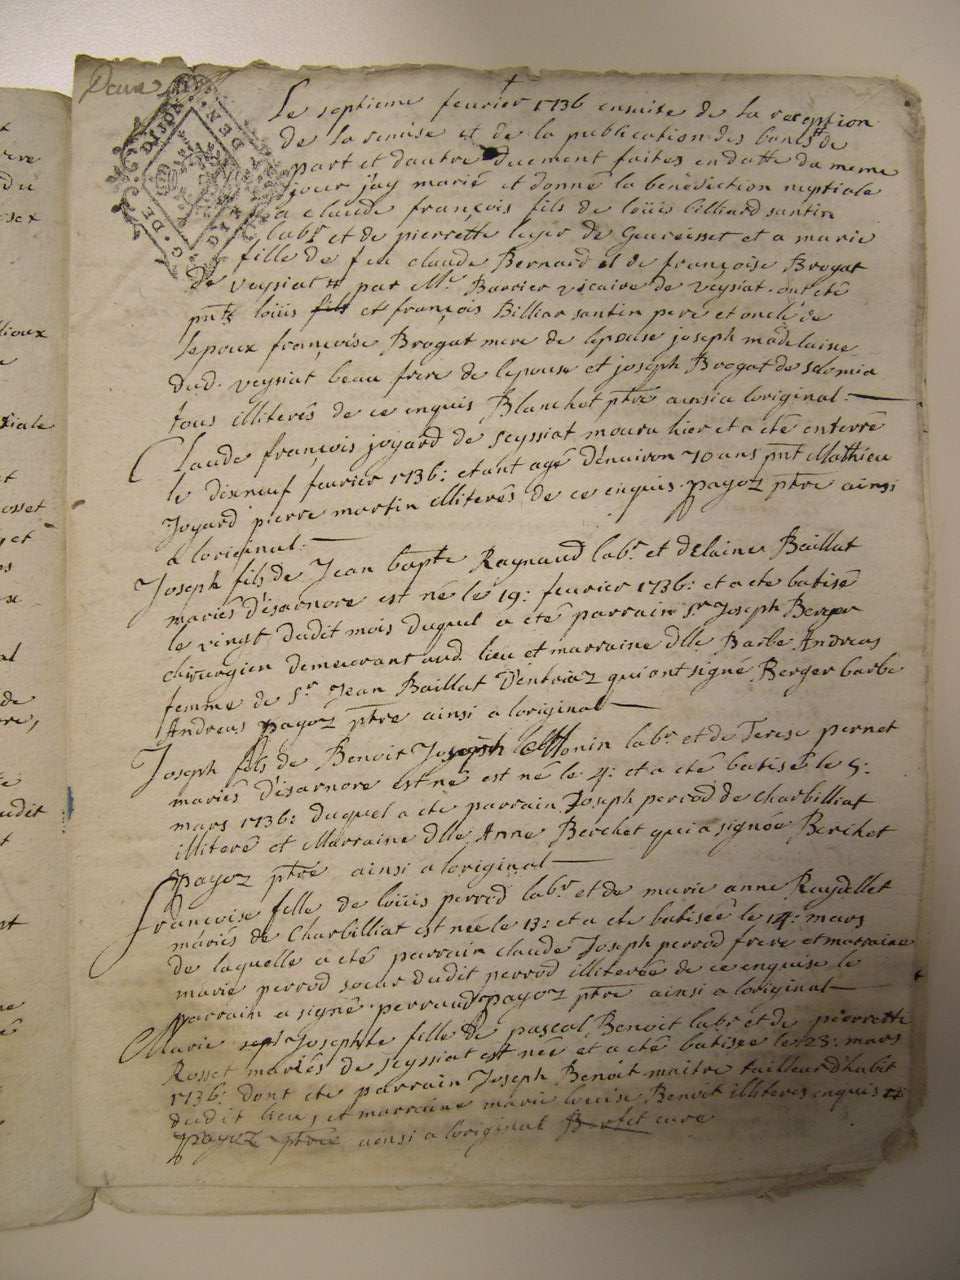 Deux
G. DE DIJON
Le septieme fevrier 1736 ensuitte de la reception
de la remise et de la publication des bans de
part et dautre duement faites en datte du meme
jour j'ay marié et donné la bénédiction nuptiale
a claude françois fils de loüis Billiard santin
labr et de pierrette leger de Geureisset et a marie
fille de feu claude Bernard et de françoise Brogat
de veysiat par Mr Barrier vicaire de veysiat. ont été
pnts loüis fils et françois Billiar santin pere et oncle de
lepoux françoise Brogat mere de lepouse joseph madelaine
dud. veysiat beau frere de lepouse et joseph Brogat de Samoia
tous illiterés de ce enquis Blanchet ptre ainsi a loriginal.
Claude françois joyard de seyssiat mouru hier et a été enterré
le dixneuf fevrier 1736: etant agé d'environ 70 ans pnt Mathieu
Joyard pierre martin illiterés de ce enquis. payoz ptre ainsi
a loriginal.
Joseph fils de Jean bapte Raynaud labr et delaine Baillat
mariés d'isarnore est né le 19: fevrier 1736: et a été batisé
le vingt dudit mois duquel a été parrain sr Joseph Berger
chirurgien demeurant aud. lieu et marraine dlle Barbe Andreas
femme de Sr Jean Baillat d'intriaz qui ont signé Berger barbe
Andreas payoz ptre ainsi a loriginal
Joseph fils de Benoit Joseph Monin labr et de Terese pernet
mariés d'isarnore est né est né le 4: et a été batisé le 5:
mars 1736: duquel a été parrain Joseph perrod de Charbilliat
illiteré et Marraine dlle Anne Berchet qui a signée Berchet
payoz ptre ainsi a loriginal
françoise fille de loüis perrod labr et de marie anne Raydellet
mariés de Charbilliat est née le 13: et a été batisée le 14: mars
de laquelle a été parrain claude Joseph perrod frere et marraine
marie perrod soeur dudit perrod illiterée de ce enquise le
parrain a signé. perraud payoz ptre ainsi a loriginal
Marie Josephte fille de pascal Benoit labr et de pierrette
Rosset mariés de seyssiat est née et a été batisée le 28: mars
1736: dont été parrain Joseph Benoit maitre tailleur d'habit
dudit lieu, et marraine marie louise Benoit illiteres enquis
payoz ptre ainsi a loriginal cure